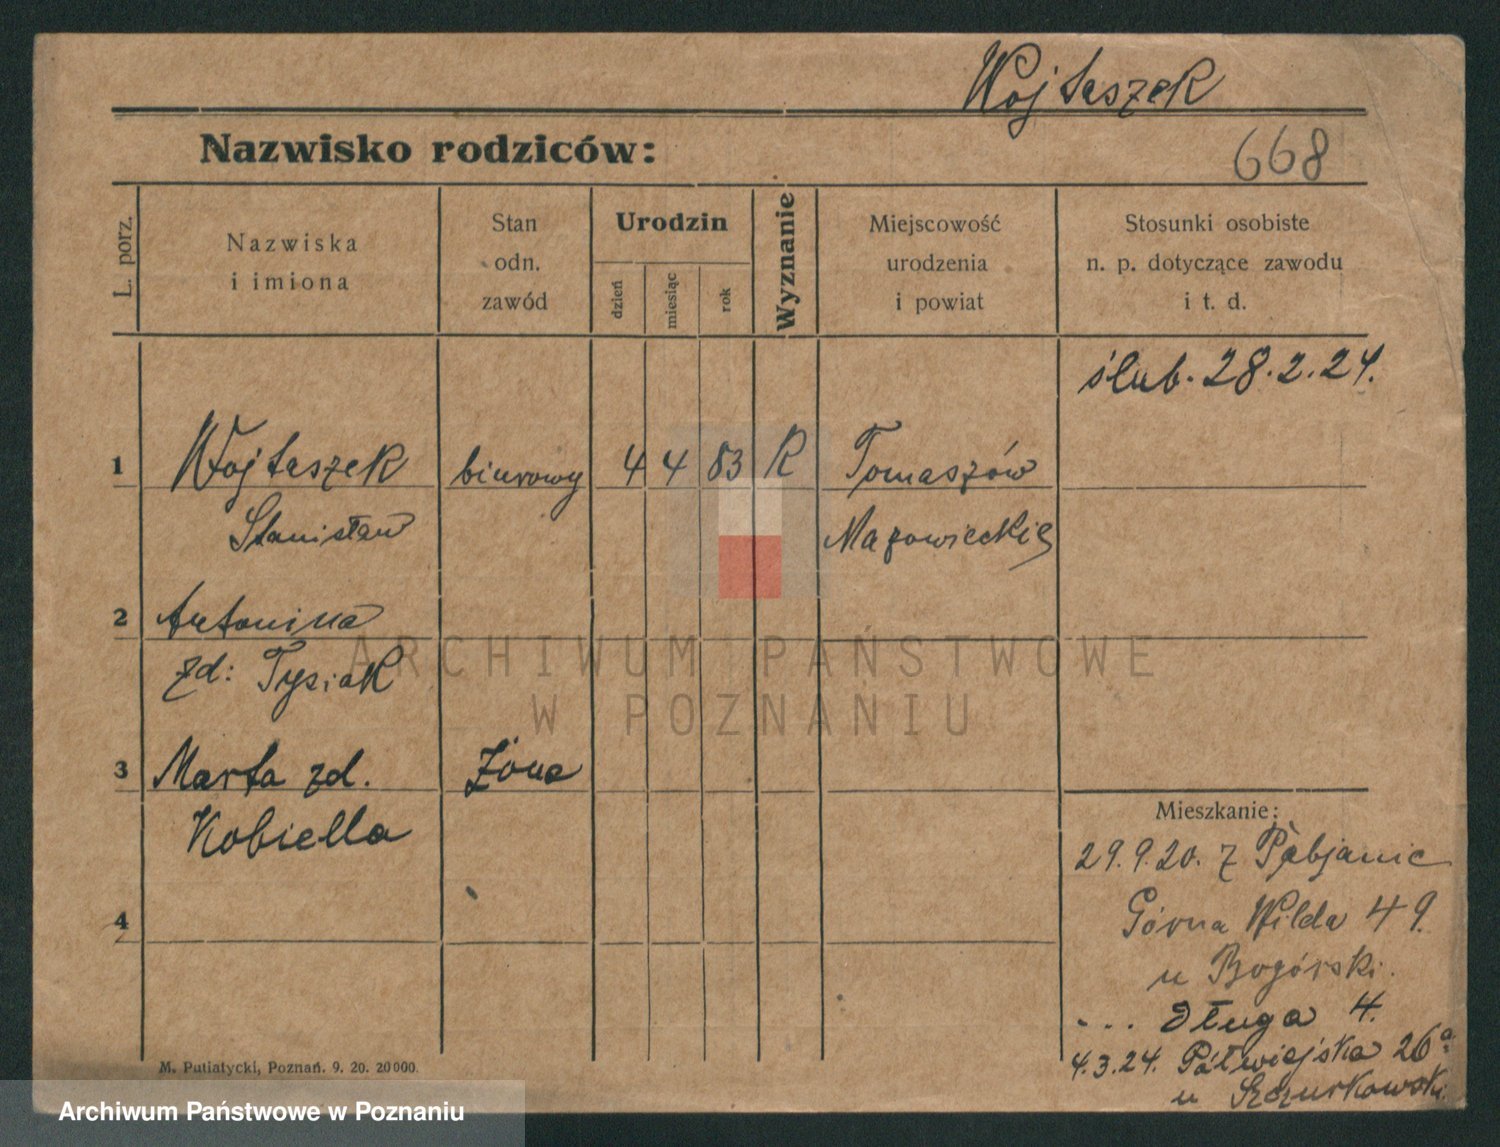 Wojtaszek
Nazwisko rodziców:
668
L. porz.
Nazwiska
i imiona
Stan
odn.
zawód
Urodzin
dzień
miesiąc
rok
Wyznanie
Miejscowość
urodzenia
i powiat
Stosunki osobiste
n. p. dotyczące zawodu
i t. d.
ślub. 28.2.24.
1 Wojtaszek biurowy 4 4 83 R Tomaszów
Stanisław Mazowieckie
2 Antonina
zd: Tysiak
ARCHIWUM PAŃSTWOWE
W POZNANIU
3 Marta zd. Żona
Kobiella
Mieszkanie:
29.9.20. z Pabjanic
Górna Wilda 49.
u Bogórski.
4
... Długa 4.
4.3.24. Półwiejska 26a
u Szczurkowski.
M. Putiatycki, Poznań. 9. 20. 20000.
Archiwum Państwowe w Poznaniu